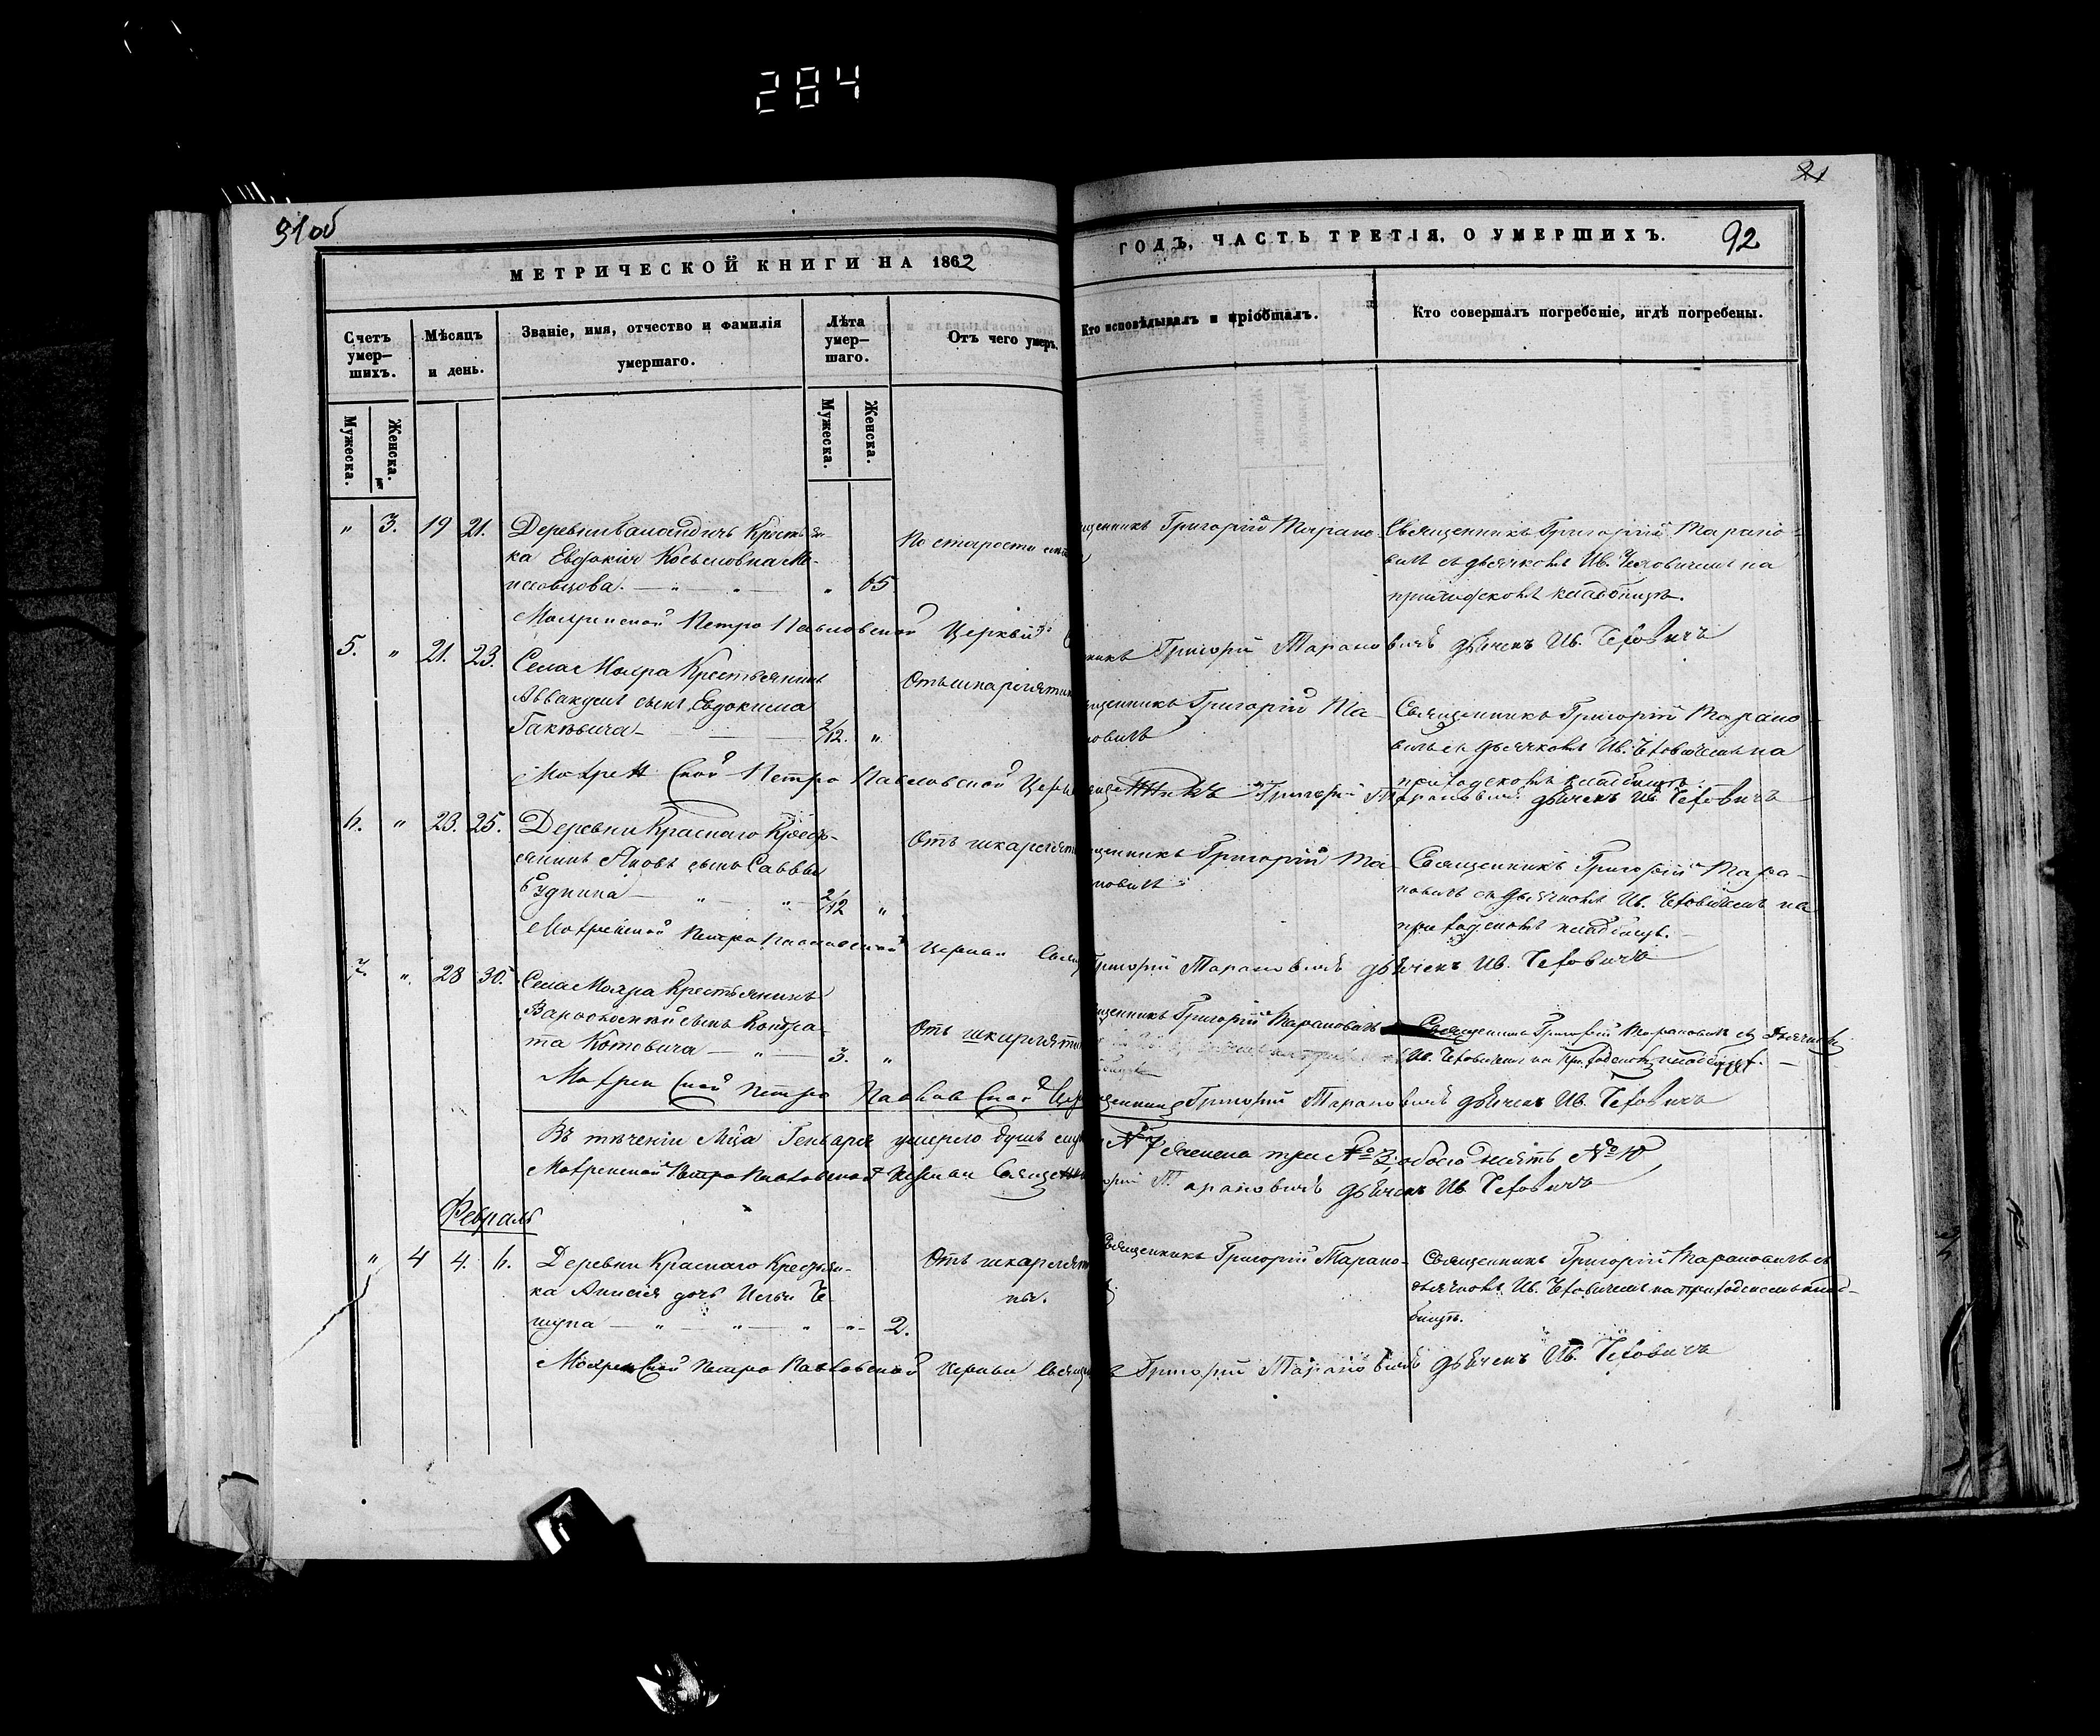 284
91 об
21
92
МЕТРИЧЕСКОЙ КНИГИ НА 1862
ГОДЪ, ЧАСТЬ ТРЕТІЯ, О УМЕРШИХЪ.
Счетъ умер—шихъ.
Мѣсяцъ и день.
Званіе, имя, отчество и фамилія умершаго.
Лѣта умер—шаго.
Отъ чего умеръ.
Кто исповѣдывалъ и пріобщалъ.
Кто совершалъ погребеніе, и гдѣ погребены.
Мужеска.
Женска.
Мужеска.
Женска.
" 3. 19 21. Деревни Крестьян-
ка Евдокія
" 65
По старости
Григорій Тарано-
Священникъ Григорій Тарано-
вичъ съ дьячкомъ Ив. Чеховичемъ на
приходскомъ кладбищѣ.
Мохренской Петро Павловской Церкви
Григорій Тарановичъ дьячекъ Ив. Чеховичъ
5. " 21. 23. Села Мохра Крестьянинъ
Аввакумъ сынъ Евдокима
2/12. "
Отъ шкарлятин
Григорій Та-
новичъ
Священникъ Григорій Тарано-
вичъ съ дьячкомъ Ив. Чеховичемъ на
приходскомъ кладбищѣ.
Мохренской Петро Павловской Церк
Григорій Тарановичъ дьячекъ Ив. Чеховичъ
6. " 23. 25. Деревни Краснаго Крест-
янинъ Яковъ сынъ Саввы
2/12 "
Отъ шкарлят
Григорій Та-
новичъ
Священникъ Григорій Тара-
новичъ съ дьячкомъ Ив. Чеховичемъ на
приходскомъ кладбищѣ.
Мохренской Петро Павловской Церкви Свящ
Григорій Тарановичъ дьячекъ Ив. Чеховичъ
7. " 28 30. Села Мохра Крестьянинъ
сынъ Кондра-
та Котовича — " — 3. "
Отъ шкарлят
Григорій Тарановичъ
Священникъ Григорій Тарановичъ съ дьячкомъ
Ив. Чеховичемъ на приходскомъ кладбищѣ.
Мохренской Петро Павловской Цер
Григорій Тарановичъ дьячекъ Ив. Чеховичъ
Въ теченіи Мца Генваря умерло душъ муж
№ 7 женска три № 3, обоего десять № 10
Мохренской Петро Павловской Церкви Священ
орій Тарановичъ дьячекъ Ив. Чеховичъ
Февраль
" 4 4. 6. Деревни Краснаго Крестьян-
ка Анисія дочь Ильи Че-
шуна — " — " — " 2.
Отъ шкарлят
ны.
Священникъ Григорій Тарано-
Священникъ Григорій Тарановичъ съ
дьячкомъ Ив. Чеховичемъ на приходскомъ клад-
бищѣ.
Мохренской Петро Павловской Церкви Священ
Григорій Тарановичъ дьячекъ Ив. Чеховичъ